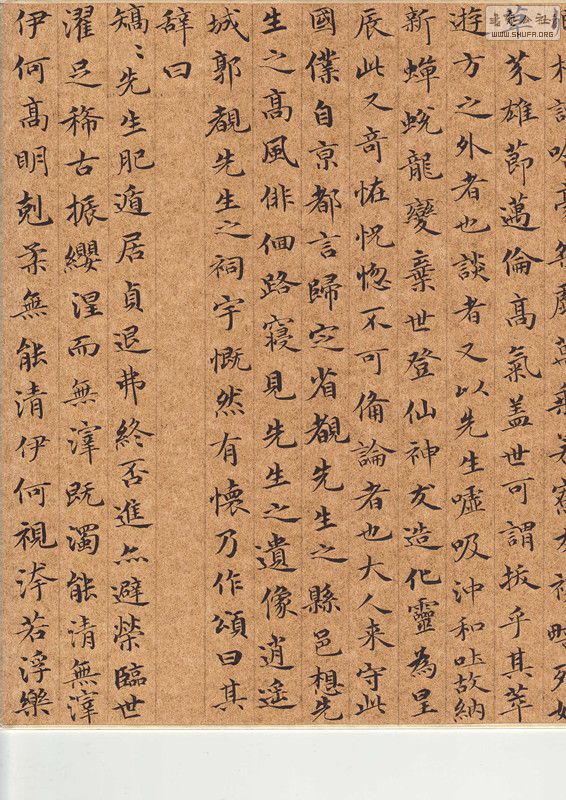 WWW.SHUFA.ORG
芥雄莭邁倫高氣蓋世可謂拔乎其萃
遊方之外者也談者又以先生噓吸沖和吐故納
新蟬蛻龍變棄世登仙神友造化靈為星
辰此又奇恠怳惚不可備論者也大人来守此
國僕自京都言歸定省覩先生之縣邑想先
生之高風俳佪路寢見先生之遺像逍遙
城郭覩先生之祠宇慨然有懷乃作頌曰其
辞曰
矯〻先生肥遁居貞退弗終否進亦避榮臨世
濯足稀古振纓涅而無滓既濁能清無滓
伊何高明剋柔無能清伊何視洿若浮樂